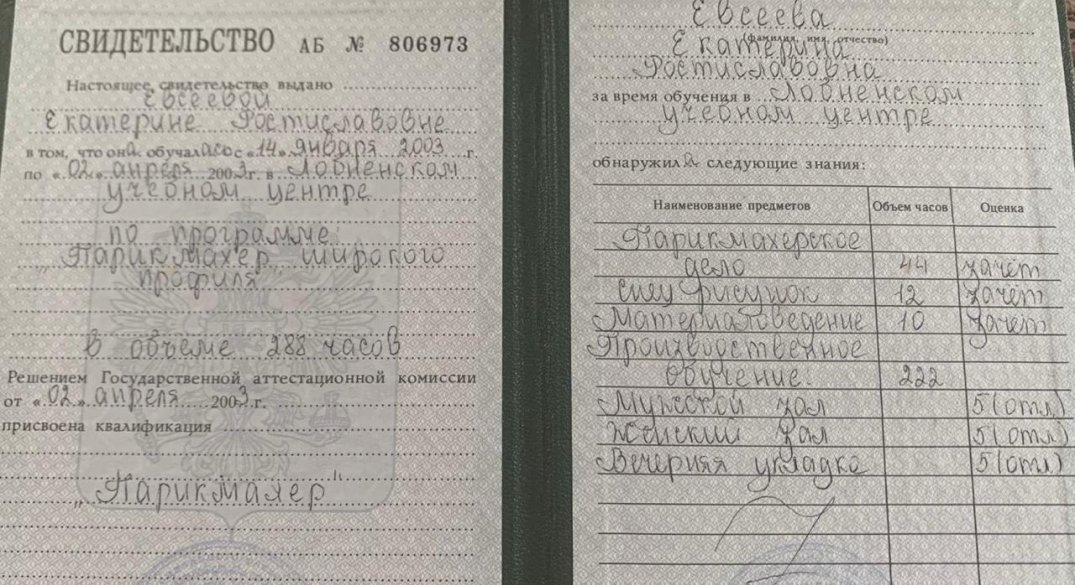 СВИДЕТЕЛЬСТВО АБ № 806973
Настоящее свидетельство выдано
Евсеевой
Екатерине Ростиславовне
в том, что она обучалась с «14» января 2003 г.
по «02» апреля 2003 г. в Лобненском
учебном центре
по программе:
"Парикмахер широкого
профиля"
в объеме 288 часов
Решением Государственной аттестационной комиссии
от «02» апреля 2003 г.
присвоена квалификация
"Парикмахер"
Евсеева
(фамилия, имя, отчество)
Екатерина
Ростиславовна
за время обучения в Лобненском
учебном центре
обнаружила следующие знания:
Наименование предметов Объем часов Оценка
Парикмахерское
дело 44 зачёт
Спец рисунок 12 зачёт
Материаловедение 10 зачёт
Производственное
обучение: 222
Мужской зал 5 (отл)
Женский зал 5 (отл)
Вечерняя укладка 5 (отл)